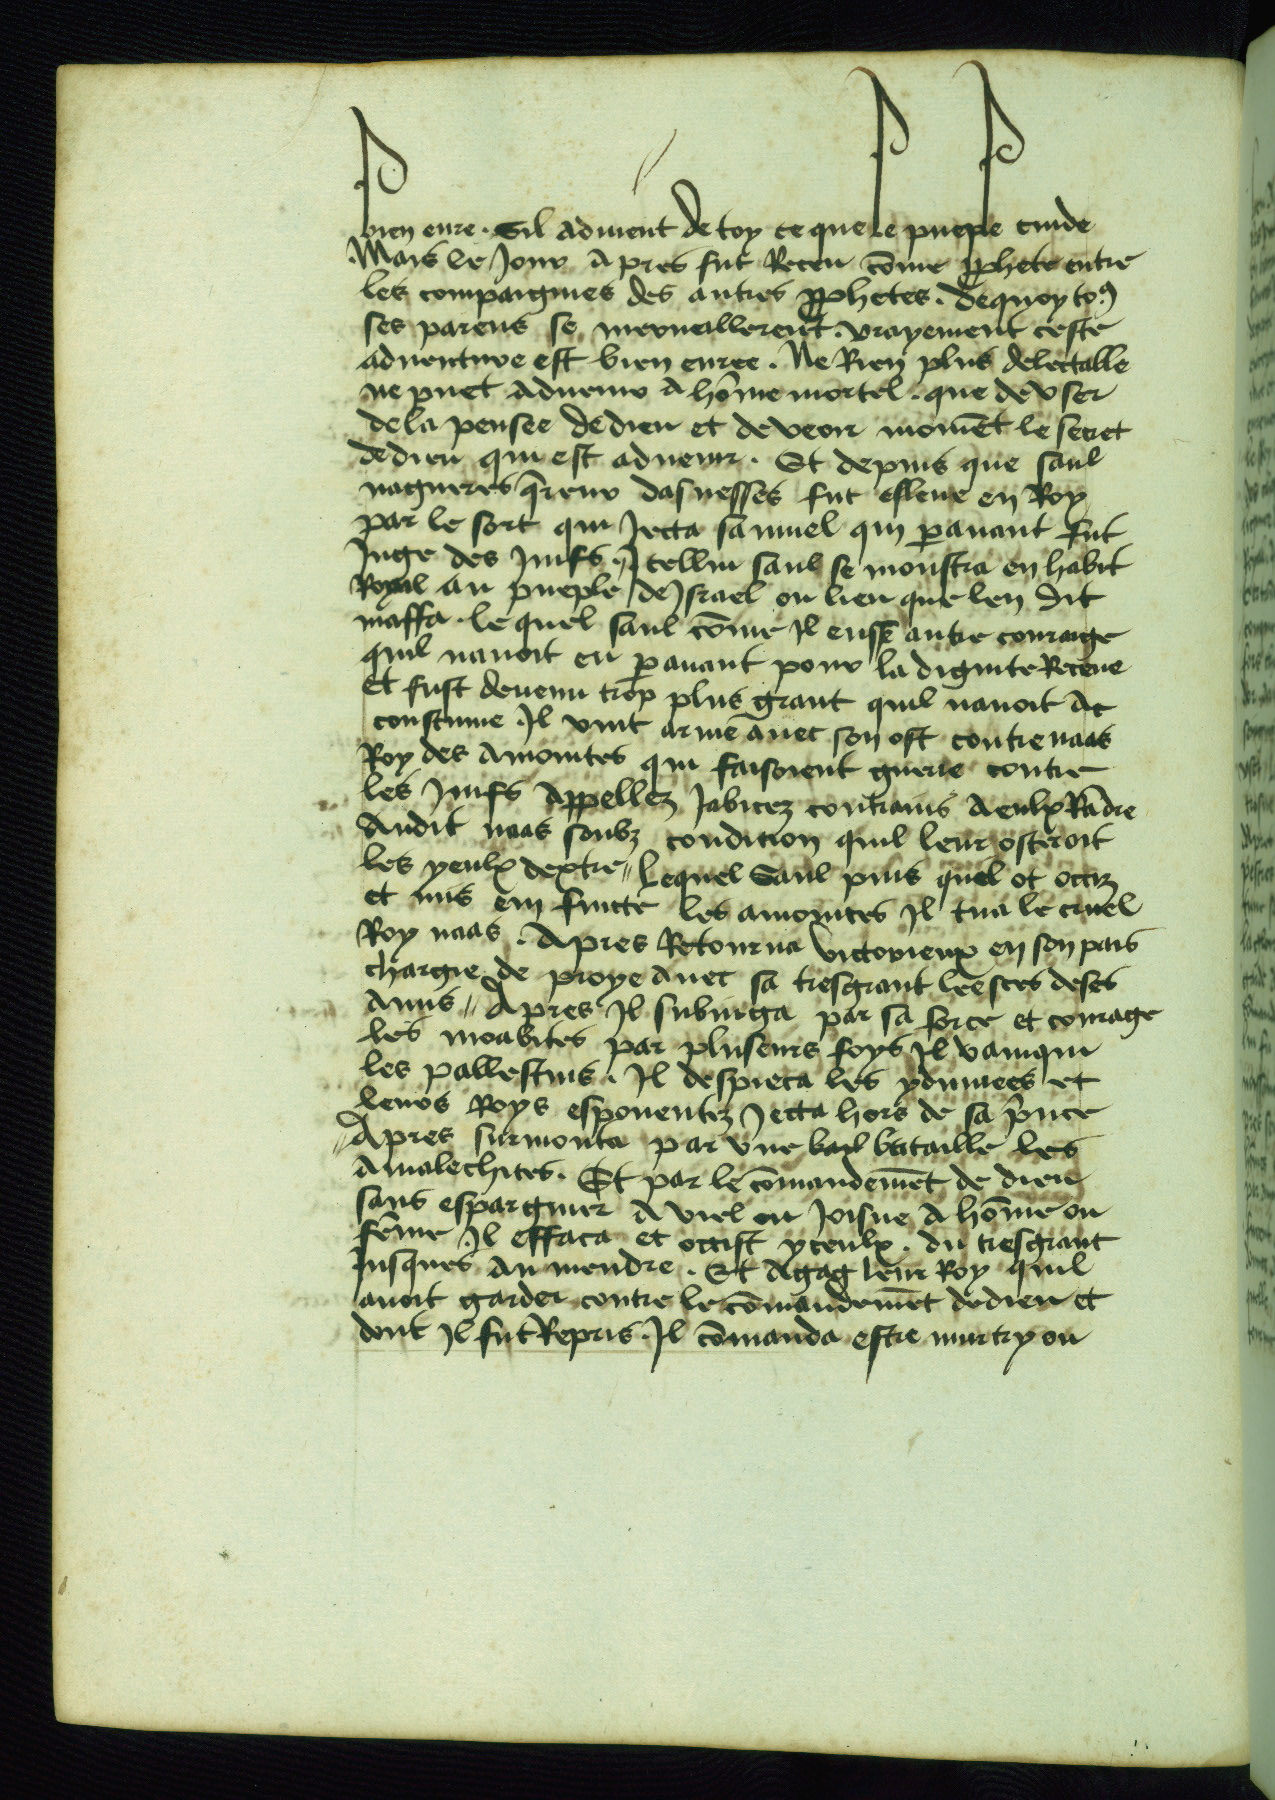 bien eure. Sil advient de toy ce que le pueple cuide
Mais le Jour Apres fut Receu cōme pphete entre
les compaignies des autres pphetes. dequoy to9
ses parens se merveillerent. vrayement ceste
adventure est bien euree. Ne Rien plus delectable
ne puet Advenir A hōme mortel. que de User
de la pensee de dieu et de veoir momēt le secret
de dieu qui est advenir. Et depuis que saul
nagueres q̄reur dasnesses fut esleue en Roy
par le sort qui Jecta samuel qui pavant fut
Juge des Juifs. Jcellui saul se monstra en habit
Royal au pueple de Jsrael ou lieu que len dit
maffa. lequel saul cōme Jl eust autre couraige
quil navoit eu pavant pour la dignite Receue
Et fust devenu trop plus grant quil navoit Ac
coustume. Jl vint arme avec son ost contre naas
Roy des Amonites qui faisoient guerre contre
les Juifs Appellez Jabitez contrains A eulx Rādre
Audit naas soubz condition quil leur osteroit
les yeulx dextre" Lequel Saul puis quel ot occiz
et mis em fuitte les amonites Jl tua le cruel
Roy naas. Apres Retourna victorieux en son pais
chargie de proye Avec sa tresgrant leesces deses
Amis" Apres Jl subiuga par sa force et courage
les moabites par pluseurs foys Jl vainqui
les pallestins. Jl despieca les ydumees et
leurs Roys espouentez Jecta hors de sa p̄nce
"Apres surmonta par une batl bataille les
Amalechites. Et par le cōmandemēt de dieu
sans espargnier A viel ou Joisne A hōme ou
fēme Jl effaca et occist yceulx. du tresgrant
Jusques Au mendre. Et Agag leur Roy quil
avoit garder contre le cōmandemēt dedieu et
dont Jl fut Repris. Jl cōmanda estre murtry ou